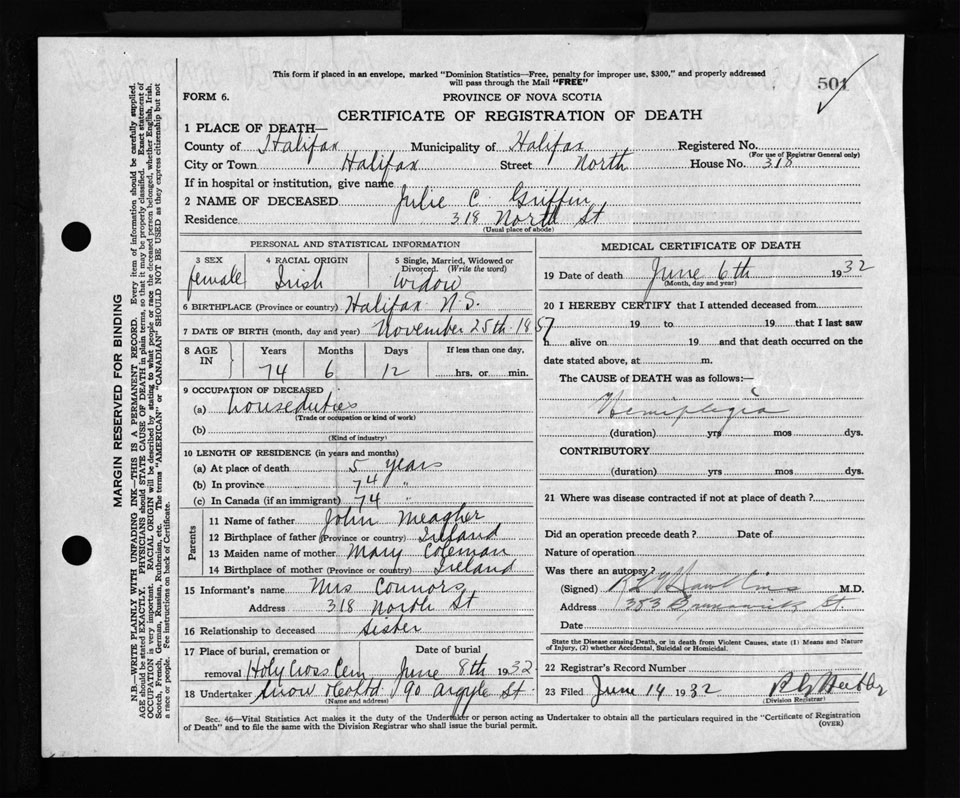 This form if placed in an envelope, marked "Dominion Statistics—Free, penalty for improper use, $300," and properly addressed
will pass through the Mail "FREE"
501
FORM 6.
PROVINCE OF NOVA SCOTIA
CERTIFICATE OF REGISTRATION OF DEATH
1 PLACE OF DEATH—
County of Halifax Municipality of Halifax Registered No.
(For use of Registrar General only)
City or Town Halifax Street North House No. 318
If in hospital or institution, give name
2 NAME OF DECEASED Julie C. Griffin
Residence 318 North St
(Usual place of abode)
PERSONAL AND STATISTICAL INFORMATION
3 SEX 4 RACIAL ORIGIN 5 Single, Married, Widowed or
Divorced. (Write the word)
female Irish Widow
6 BIRTHPLACE (Province or country) Halifax N.S.
7 DATE OF BIRTH (month, day and year) November 25th 1857
8 AGE IN Years Months Days If less than one day,
74 6 12 hrs. or min.
9 OCCUPATION OF DECEASED
(a) houseduties
(Trade or occupation or kind of work)
(b)
(Kind of industry)
10 LENGTH OF RESIDENCE (in years and months)
(a) At place of death 5 years
(b) In province 74 "
(c) In Canada (if an immigrant) 74 "
Parents
11 Name of father John Meagher
12 Birthplace of father (Province or country) Ireland
13 Maiden name of mother Mary Coleman
14 Birthplace of mother (Province or country) Ireland
15 Informant's name Mrs Connors
Address 318 North St
16 Relationship to deceased Sister
17 Place of burial, cremation or Date of burial
removal Holy Cross Cem June 8th 1932
18 Undertaker Snow & Co Ltd 90 Argyle St
(Name and address)
MEDICAL CERTIFICATE OF DEATH
19 Date of death June 6th 1932
(Month, day and year)
20 I HEREBY CERTIFY that I attended deceased from
19 to 19 that I last saw
h alive on 19 and that death occurred on the
date stated above, at m.
The CAUSE of DEATH was as follows:—
Hemiplegia
(duration) yrs mos dys.
CONTRIBUTORY
(duration) yrs mos dys.
21 Where was disease contracted if not at place of death ?
Did an operation precede death ? Date of
Nature of operation
Was there an autopsy?
(Signed) M.D.
Address 383 Brunswick St.
Date
State the Disease causing Death, or in death from Violent Causes, state (1) Means and Nature
of Injury, (2) whether Accidental, Suicidal or Homicidal.
22 Registrar's Record Number
23 Filed June 14 1932
(Division Registrar)
Sec. 46—Vital Statistics Act makes it the duty of the Undertaker or person acting as Undertaker to obtain all the particulars required in the "Certificate of Registration
of Death" and to file the same with the Division Registrar who shall issue the burial permit. (OVER)
MARGIN RESERVED FOR BINDING
N.B.—WRITE PLAINLY WITH UNFADING INK—THIS IS A PERMANENT RECORD. Every item of information should be carefully supplied.
AGE should be stated EXACTLY. PHYSICIANS should STATE CAUSE OF DEATH in plain terms, so that it may be properly classified. Exact statement of
OCCUPATION is very important. RACIAL ORIGIN will be described by stating to what people or race the deceased person belonged, whether English, Irish,
Scotch, French, German, Russian, Ruthenian, etc. The terms "AMERICAN" or "CANADIAN" SHOULD NOT BE USED as they express citizenship but not
a race or people. See instructions on back of Certificate.